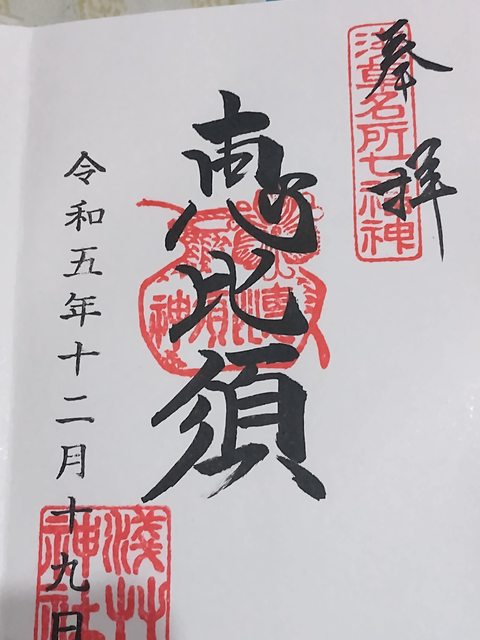 奉拝
浅草名所七福神
恵比須
令和五年十二月十九日
浅草
神社